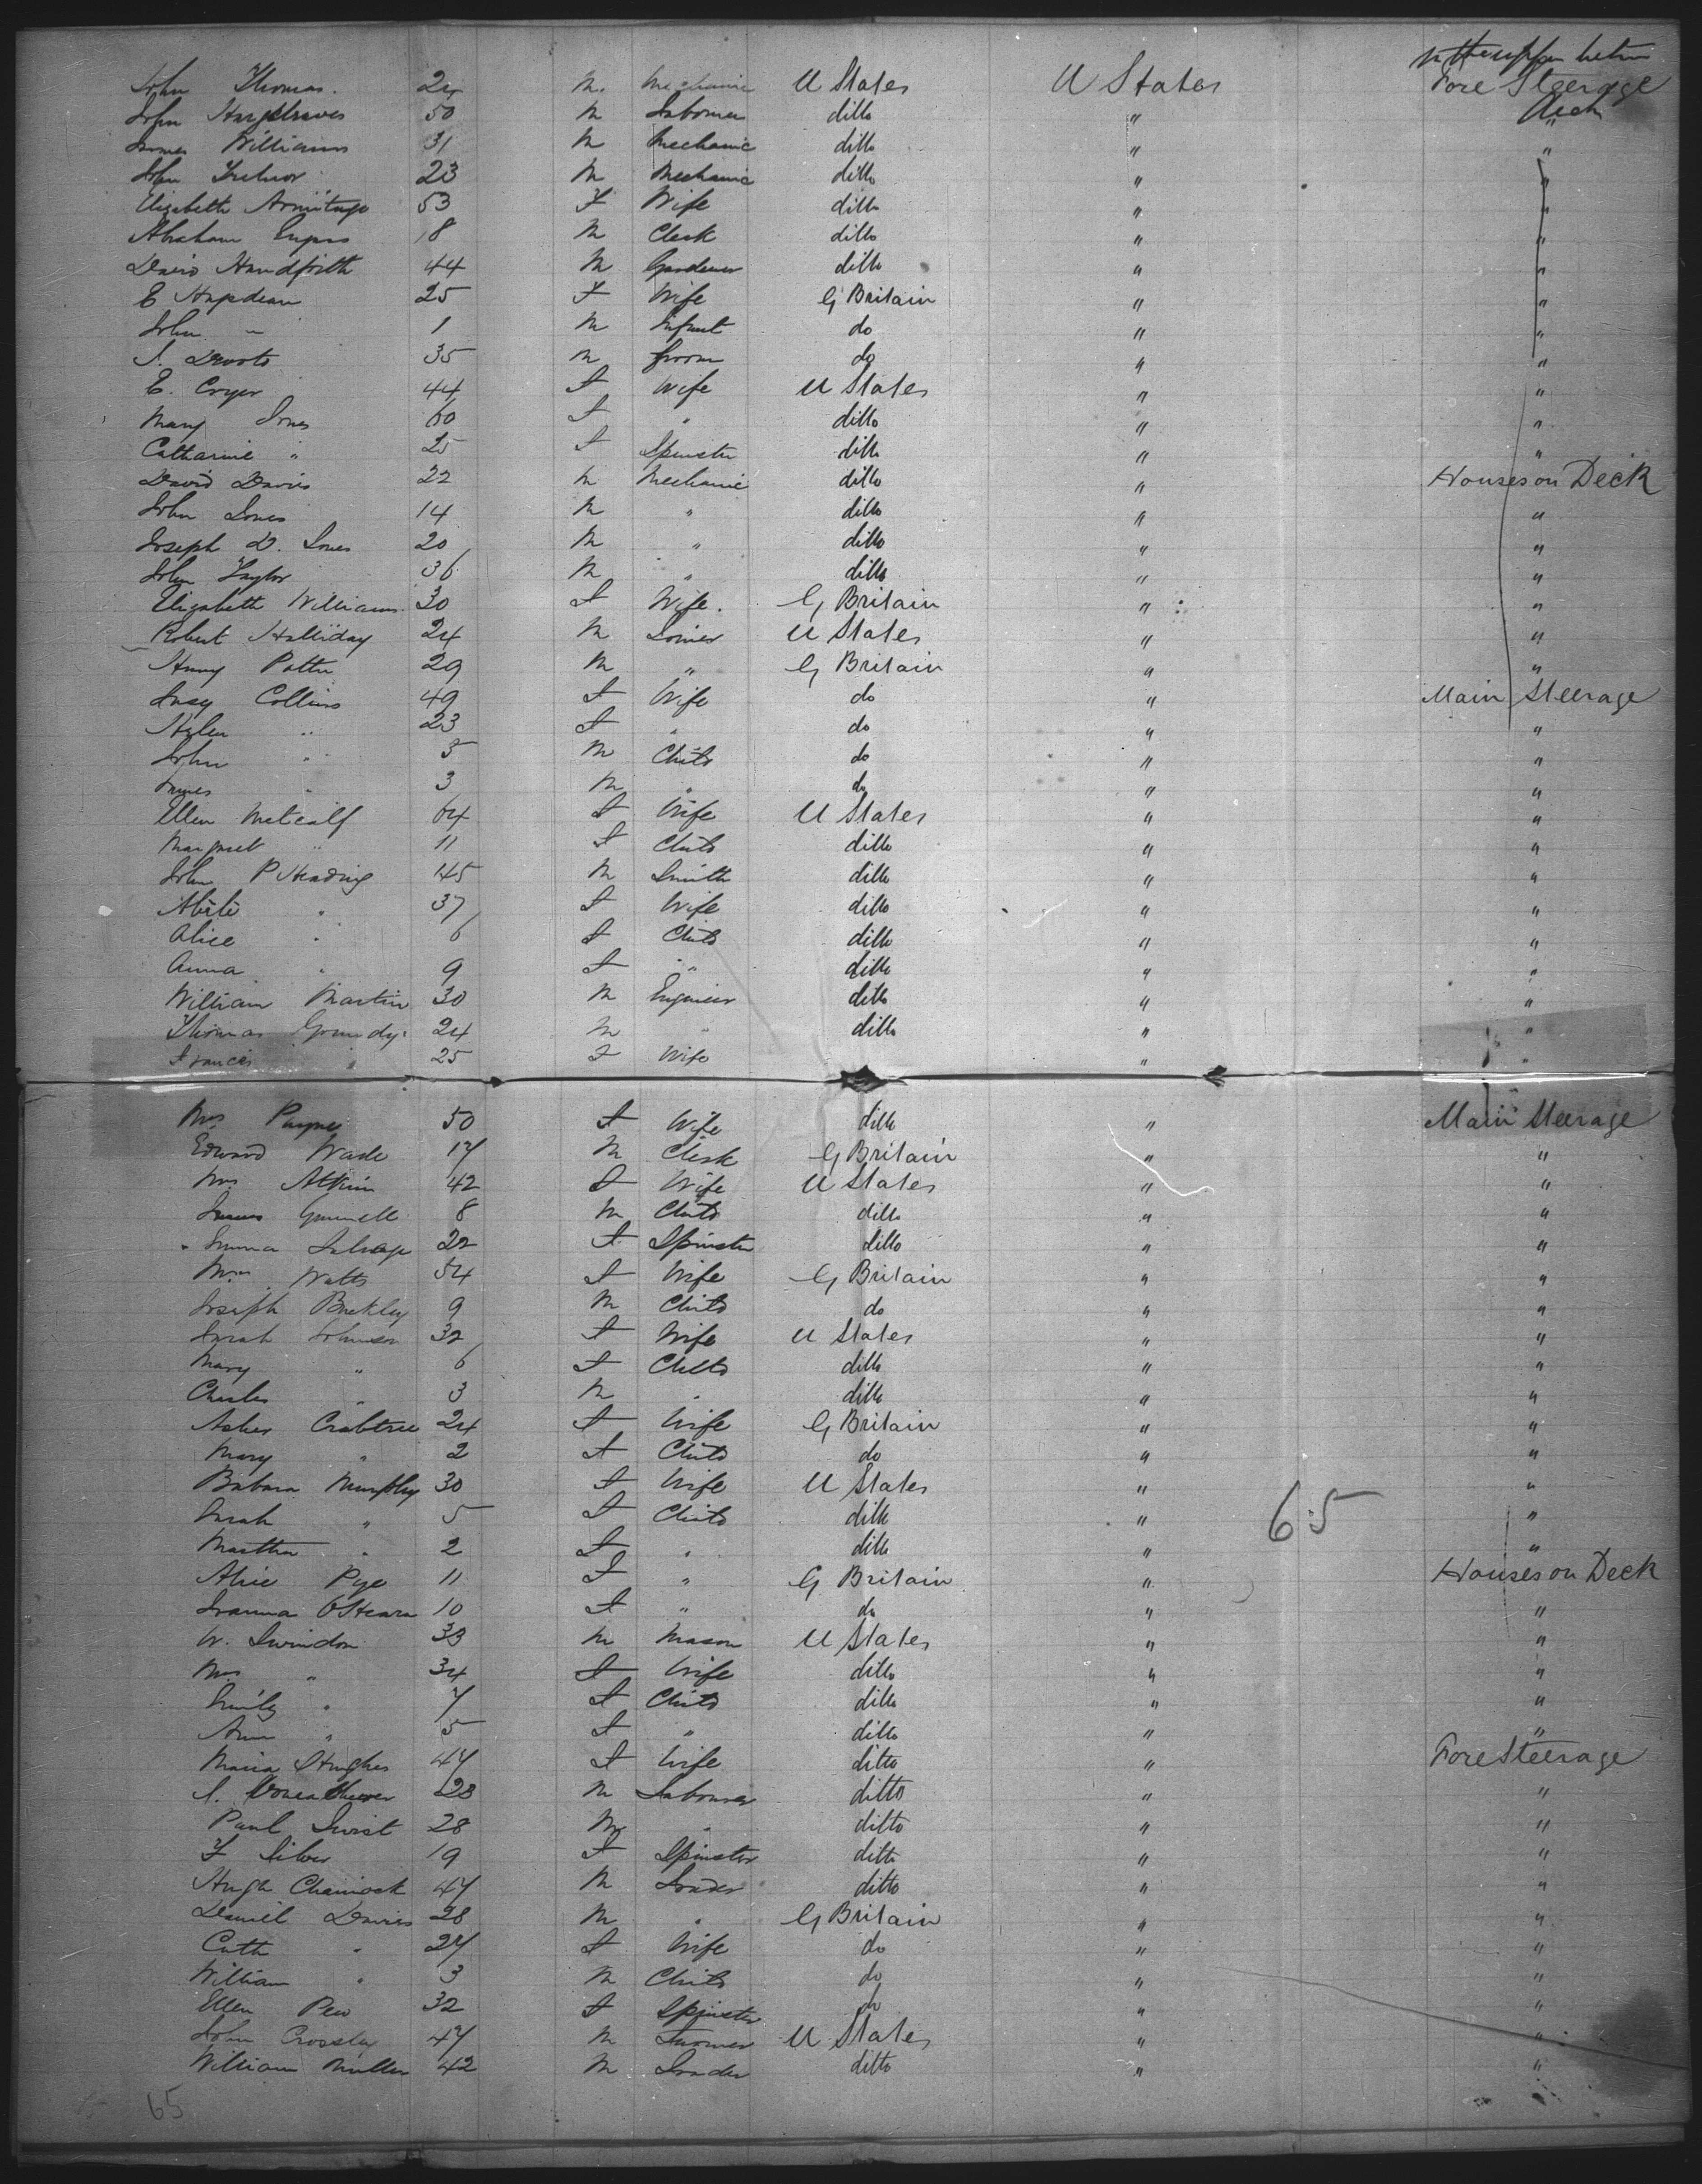 in the upper betw
John Thomas. 24 M. Mechanic U States U States Fore Steerage
John Hargreaves 50 M Labourer ditto " Deck "
James Williams 31 M Mechanic ditto " "
John 23 M Mechanic ditto " "
Elizabeth Armitage 53 F Wife ditto " "
Abraham 18 M Clerk ditto " "
David Handforth 44 M Gardener ditto " "
E 25 F Wife G Britain " "
John " 1 M Infant do " "
35 M Groom do " "
E. Cryer 44 F Wife U States " "
Mary Jones 60 F " ditto " "
Catharine " 25 F Spinster ditto " "
David Davis 22 M Mechanic ditto " Houses on Deck
John Jones 14 M " ditto " "
Joseph D. Jones 20 M " ditto " "
John Taylor 36 M " ditto " "
Elizabeth Williams 30 F Wife. G Britain " "
Robert Halliday 24 M Joiner U States " "
Henry Potter 29 M " G Britain " "
Lucy Collins 49 F Wife do " Main Steerage
Helen " 23 F " do " "
John " 5 M Child do " "
James " 3 M " do " "
Ellen Metcalf 64 F Wife U States " "
Margaret " 11 F Child ditto " "
John P Heading 45 M Smith ditto " "
" 37 F Wife ditto " "
Alice " 6 F Child ditto " "
Anna " 9 F " ditto " "
William Martin 30 M Engineer ditto " "
Thomas Grundy 24 M " ditto " "
Frances " 25 F Wife " "
Mrs Payne 50 F Wife ditto " Main Steerage
Edward Wade 17 M Clerk G Britain " "
Mrs Atkin 42 F Wife U States " "
James 8 M Child ditto " "
Emma 22 F Spinster ditto " "
Mrs Watts 54 F Wife G Britain " "
Joseph Buckley 9 M Child do " "
Sarah Johnson 32 F Wife U States " "
Mary " 6 F Child ditto " "
Charles " 3 M " ditto " "
Crabtree 24 F Wife G Britain " "
Mary " 2 F Child do " "
Babara Murphy 30 F Wife U States " "
Sarah " 5 F Child ditto " 65 "
Martha " 2 F " ditto " "
Alice Pye 11 F " G Britain " Houses on Deck
Joanna O'Hearn 10 F " do " "
W. Swindon 33 M Mason U States " "
Mrs " 34 F Wife ditto " "
Emily " 7 F Child ditto " "
Ann " 5 F " ditto " "
Maria Hughes 47 F Wife ditto " Fore Steerage
28 M Labourer ditto " "
Paul 28 M " ditto " "
F Silver 19 F Spinster ditto " "
Hugh Charnock 47 M ditto " "
Daniel Davies 28 M " G Britain " "
Cath " 27 F Wife do " "
William " 3 M Child do " "
Ellen Pew 32 F Spinster do " "
John Crossley 47 M Farmer U States " "
William Miller 42 M ditto " "
65